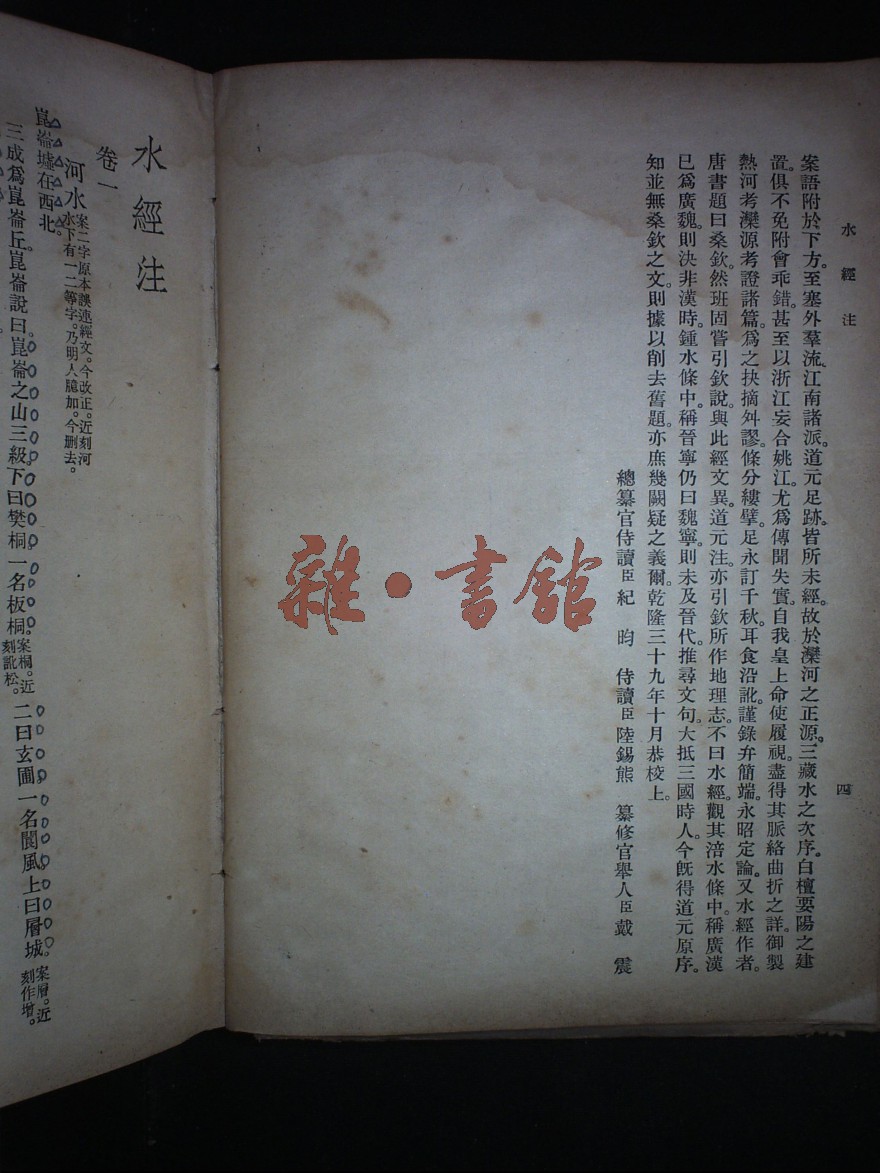 水經注
四
案語附於下方。至塞外羣流、江南諸派。道元足跡。皆所未經。故於灤河之正源。三藏水之次序。白檀要陽之建
置。俱不免附會乖錯。甚至以浙江妄合姚江。尤爲傳聞失實。自我皇上命使履視。盡得其脈絡曲折之詳。御製
熱河考灤源考證諸篇。爲之抉摘舛謬。條分縷擘。足永訂千秋。耳食沿訛。謹錄弁簡端。永昭定論。又水經作者。
唐書題曰桑欽。然班固嘗引欽說。與此經文異。道元注。亦引欽所作地理志。不曰水經。觀其涪水條中。稱廣漢
已爲廣魏。則決非漢時。鍾水條中。稱晉寧仍曰魏寧。則未及晉代。推尋文句。大抵三國時人。今旣得道元原序。
知並無桑欽之文。則據以削去舊題。亦庶幾闕疑之義爾。乾隆三十九年十月恭校上。
總纂官侍讀臣紀昀 侍讀臣陸錫熊 纂修官舉人臣戴震
水經注
卷一
河水案二字原本誤連經文。今改正。近刻河
水下有一二等字。乃明人臆加。今刪去。
崑崙墟在西北。
三成爲崑崙丘。崑崙說曰。崑崙之山三級下曰樊桐一名板桐。案桐。近刻訛松。二曰玄圃一名閬風上曰層城。案層。近刻作增。
雜·書館